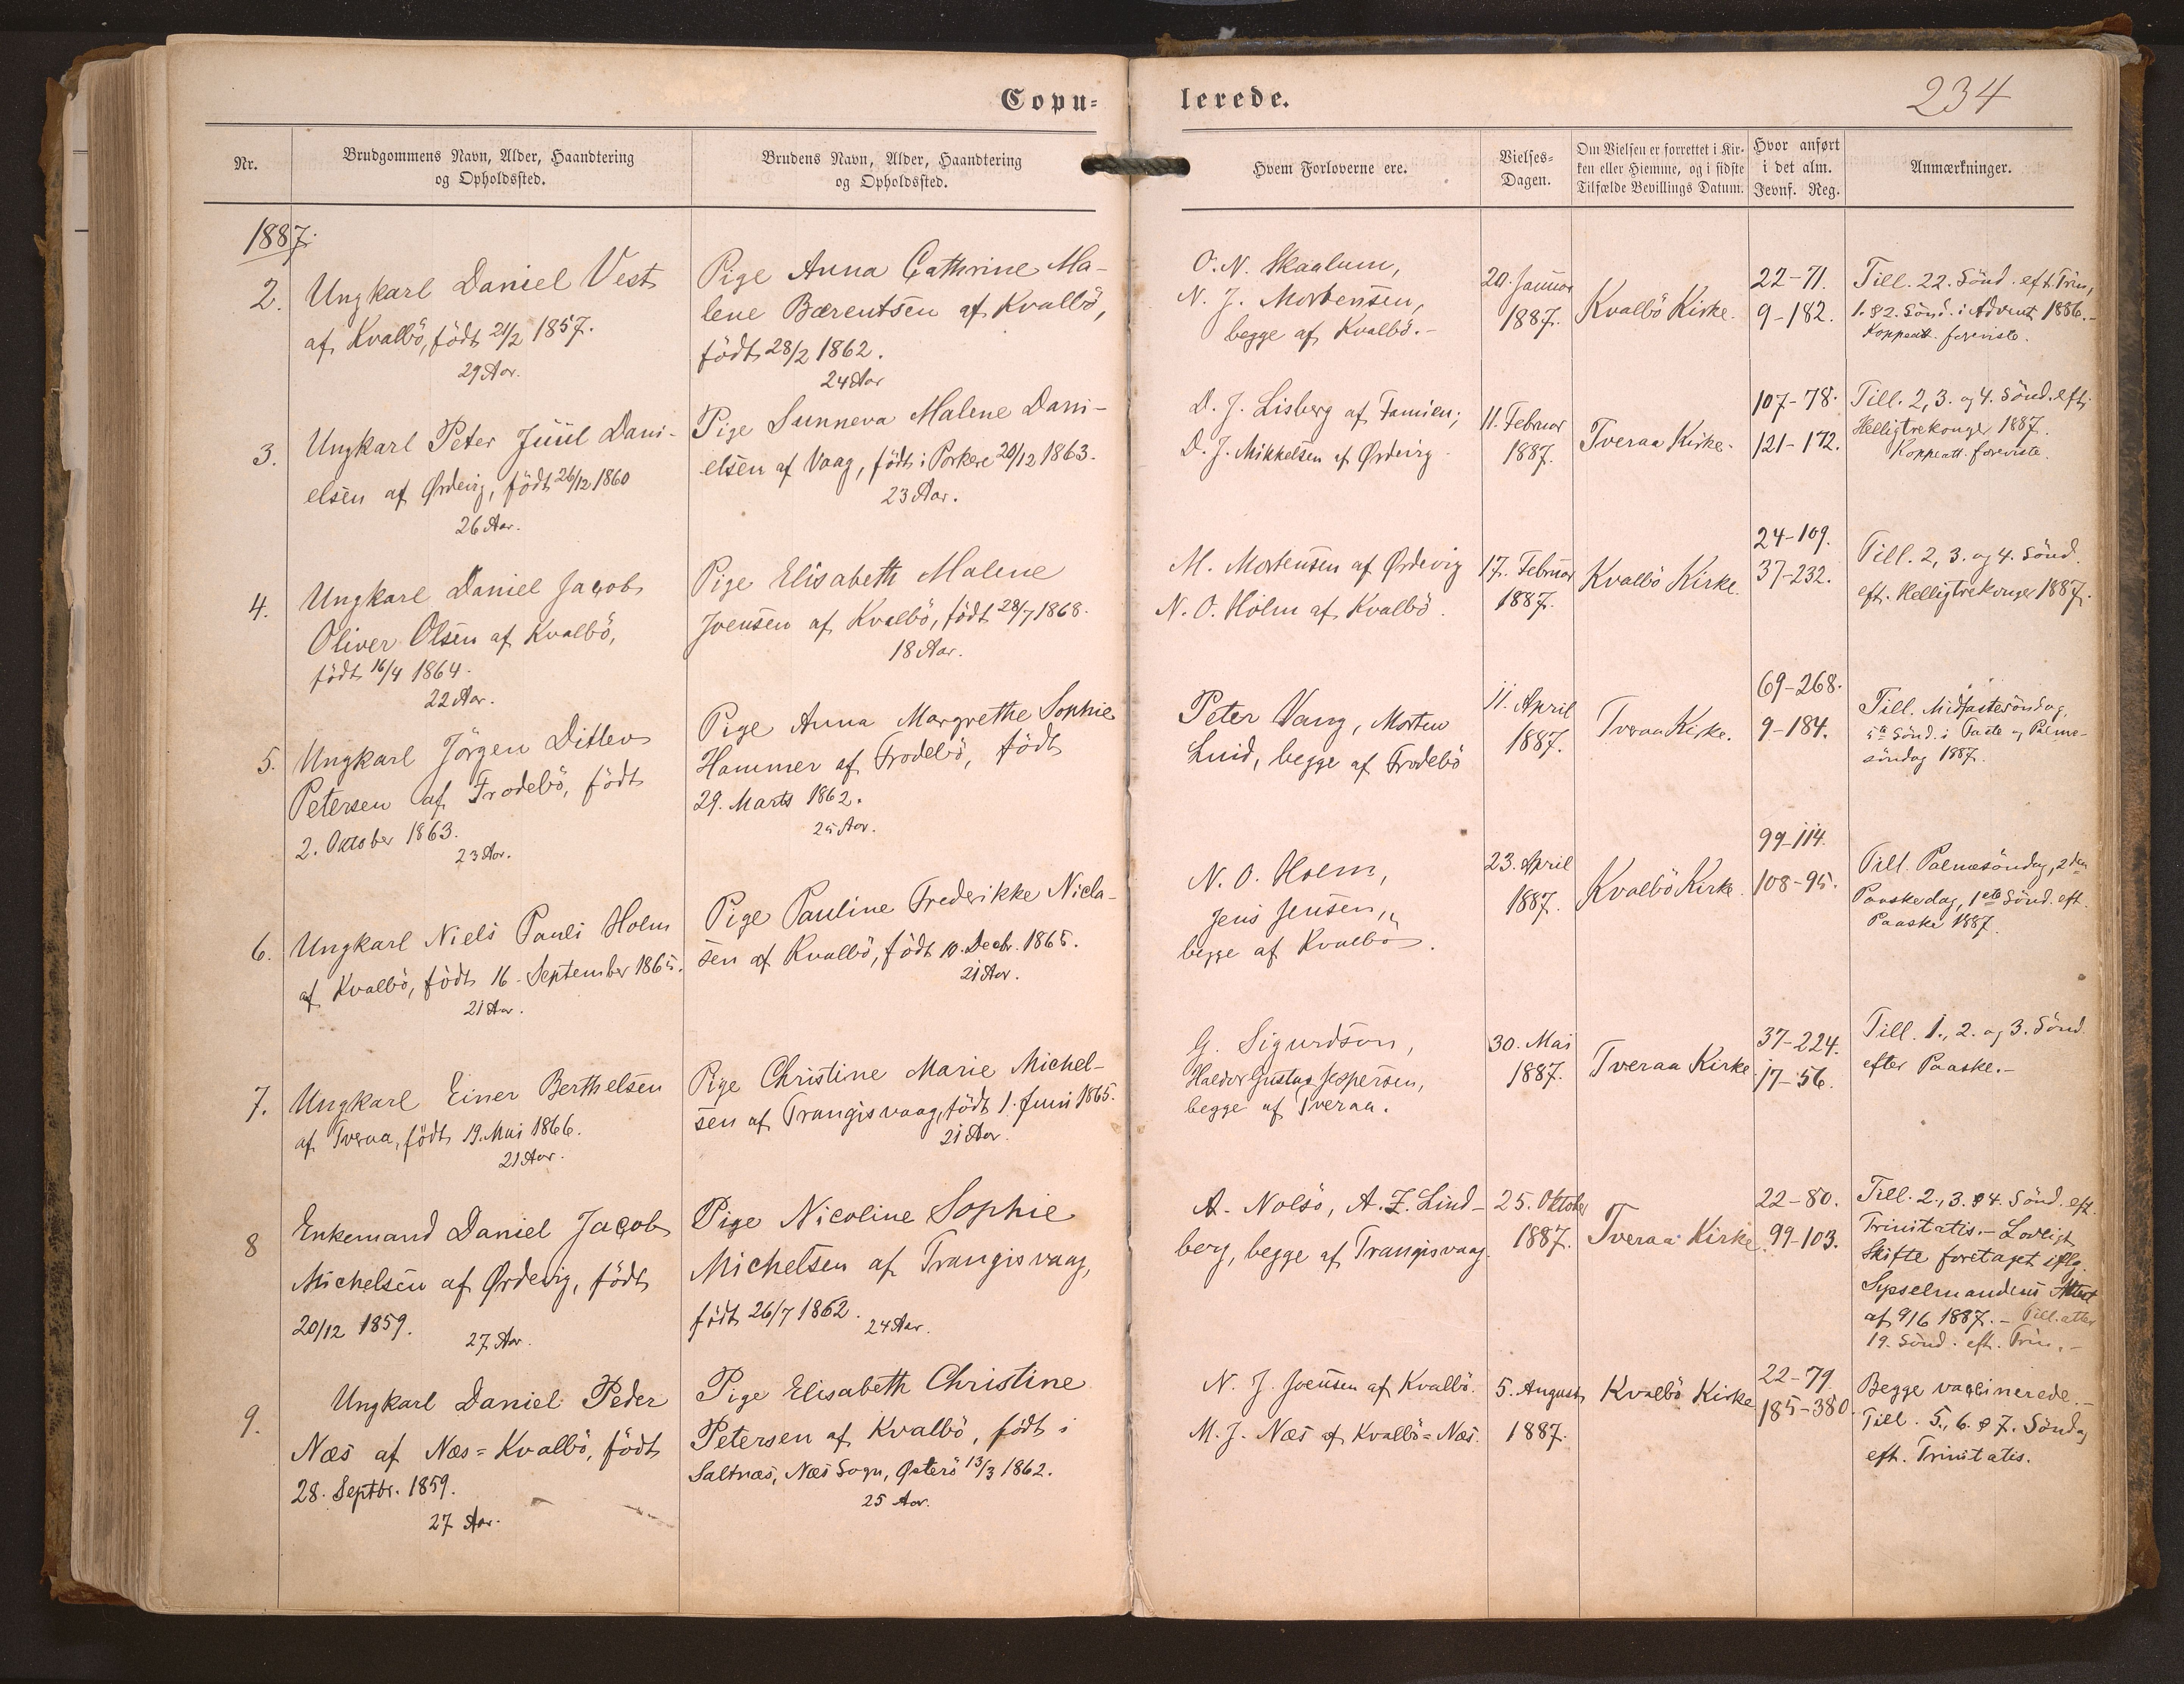 Copu=
lerede.
234
Nr.
Brudgommens Navn, Alder, Haandtering
og Opholdssted.
Brudens Navn, Alder, Haandtering
og Opholdssted.
Hvem Forloverne ere.
Vielses=
Dagen.
Om Vielsen er forrettet i Kir=
ken eller Hiemme, og i sidste
Tilfælde Bevillings Datum.
Hvor anført
i det alm.
Jevnf. Reg.
Anmærkninger.
1887.
2.
Ungkarl Daniel Vest
af Kvalbö, födt 21/2 1857.
29 Aar.
Pige Anna Cathrine Ma-
lene Bærentsen af Kvalbö,
födt 28/2 1862.
24 Aar
O. N. Skaalum,
N. J. Mortensen,
begge af Kvalbö.-
20. Januar
1887.
Kvalbö Kirke.
22-71.
9-182.
Till. 22. Sönd. eft. Trin,
1. & 2. Sönd. i Advent 1886.-
Koppeatt. foreviste.
3.
Ungkarl Peter Júúl Dani-
elsen af Ørdevig, födt 26/12 1860
26 Aar.
Pige Sunneva Malene Dani-
elsen af Vaag, födt i Porkere 20/12 1863.
23 Aar.
D. J. Lisberg af Famien;
D. J. Mikkelsen af Ørdevig.
11. Februar
1887.
Tveraa Kirke.
107-78.
121-172.
Till. 2, 3. og 4. Sönd. eft.
Helligtrekonger 1887.
Koppeatt. foreviste.
4.
Ungkarl Daniel Jacob
Oliver Olsen af Kvalbö,
födt 16/4 1864.
22 Aar.
Pige Elisabeth Malene
Joensen af Kvalbö, födt 28/7 1868.
18 Aar.
M. Mortensen af Ørdevig
N. O. Holm af Kvalbö.
17. Februar
1887.
Kvalbö Kirke.
24-109.
37-232.
Till. 2, 3. og 4. Sönd.
eft. Helligtrekonger 1887.
5.
Ungkarl Jörgen Ditlev
Petersen af Frodebö, födt
2. Oktober 1863.
23 Aar.
Pige Anna Margrethe Sophie
Hammer af Frodebö, födt
29. Marts 1862.
25 Aar.
Peter Vang, Morten
Luid, begge af Frodebö
11. April
1887.
Tveraa Kirke.
69-268.
9-184.
Till. Midfastesöndag,
5te Sönd. i Faste og Palme-
söndag 1887.
6.
Ungkarl Niels Pauli Holm
af Kvalbö, födt 16. September 1865.
21 Aar.
Pige Pauline Frederikke Nicla-
sen af Kvalbö, födt 10. Decbr. 1865.
21 Aar.
N. O. Holm,
Jens Jensen,
begge af Kvalbö.
23. April
1887.
Kvalbö Kirke.
99-114.
108-95.
Till. Palmesöndag, 2den
Paaskedag, 1ste Sönd. eft.
Paaske 1887.
7.
Ungkarl Einer Berthelsen
af Tveraa, födt 19. Mai 1866.
21 Aar.
Pige Christine Marie Michel-
sen af Trangisvaag, födt 1. Juni 1865.
21 Aar.
G. Sigurdson,
Haldor Gustav Jespersen,
begge af Tveraa.
30. Mai
1887.
Tveraa Kirke
37-224.
17-56.
Till. 1., 2. og 3. Sönd.
efter Paaske.-
8
Enkemand Daniel Jacob
Michelsen af Ørdevig, födt
20/12 1859.
27 Aar.
Pige Nicoline Sophie
Michelsen af Trangisvaag,
födt 26/7 1862.
24 Aar.
A. Nolsö, A. Z. Lind-
berg, begge af Trangisvaag.
25. Oktober
1887.
Tveraa Kirke.
22-80.
99-103.
Till. 2., 3. & 4. Sönd. eft.
Trinitatis.- Lovligt
Skifte foretaget iflg.
Sysselmandens Attest
af 9/6 1887.- Till. atter
19. Sönd. eft. Trin.-
9.
Ungkarl Daniel Peder
Næs af Næs=Kvalbö, födt
28. Septbr. 1859.
27 Aar.
Pige Elisabeth Christine
Petersen af Kvalbö, födt i
Saltnæs, Næs Sogn, Østerö 13/3 1862.
25 Aar.
N. J. Joensen af Kvalbö.
M. J. Næs af Kvalbö=Næs.
5. August
1887.
Kvalbö Kirke
22-79.
185-380.
Begge vaccinerede.-
Till. 5., 6. & 7. Söndag
eft. Trinitatis.